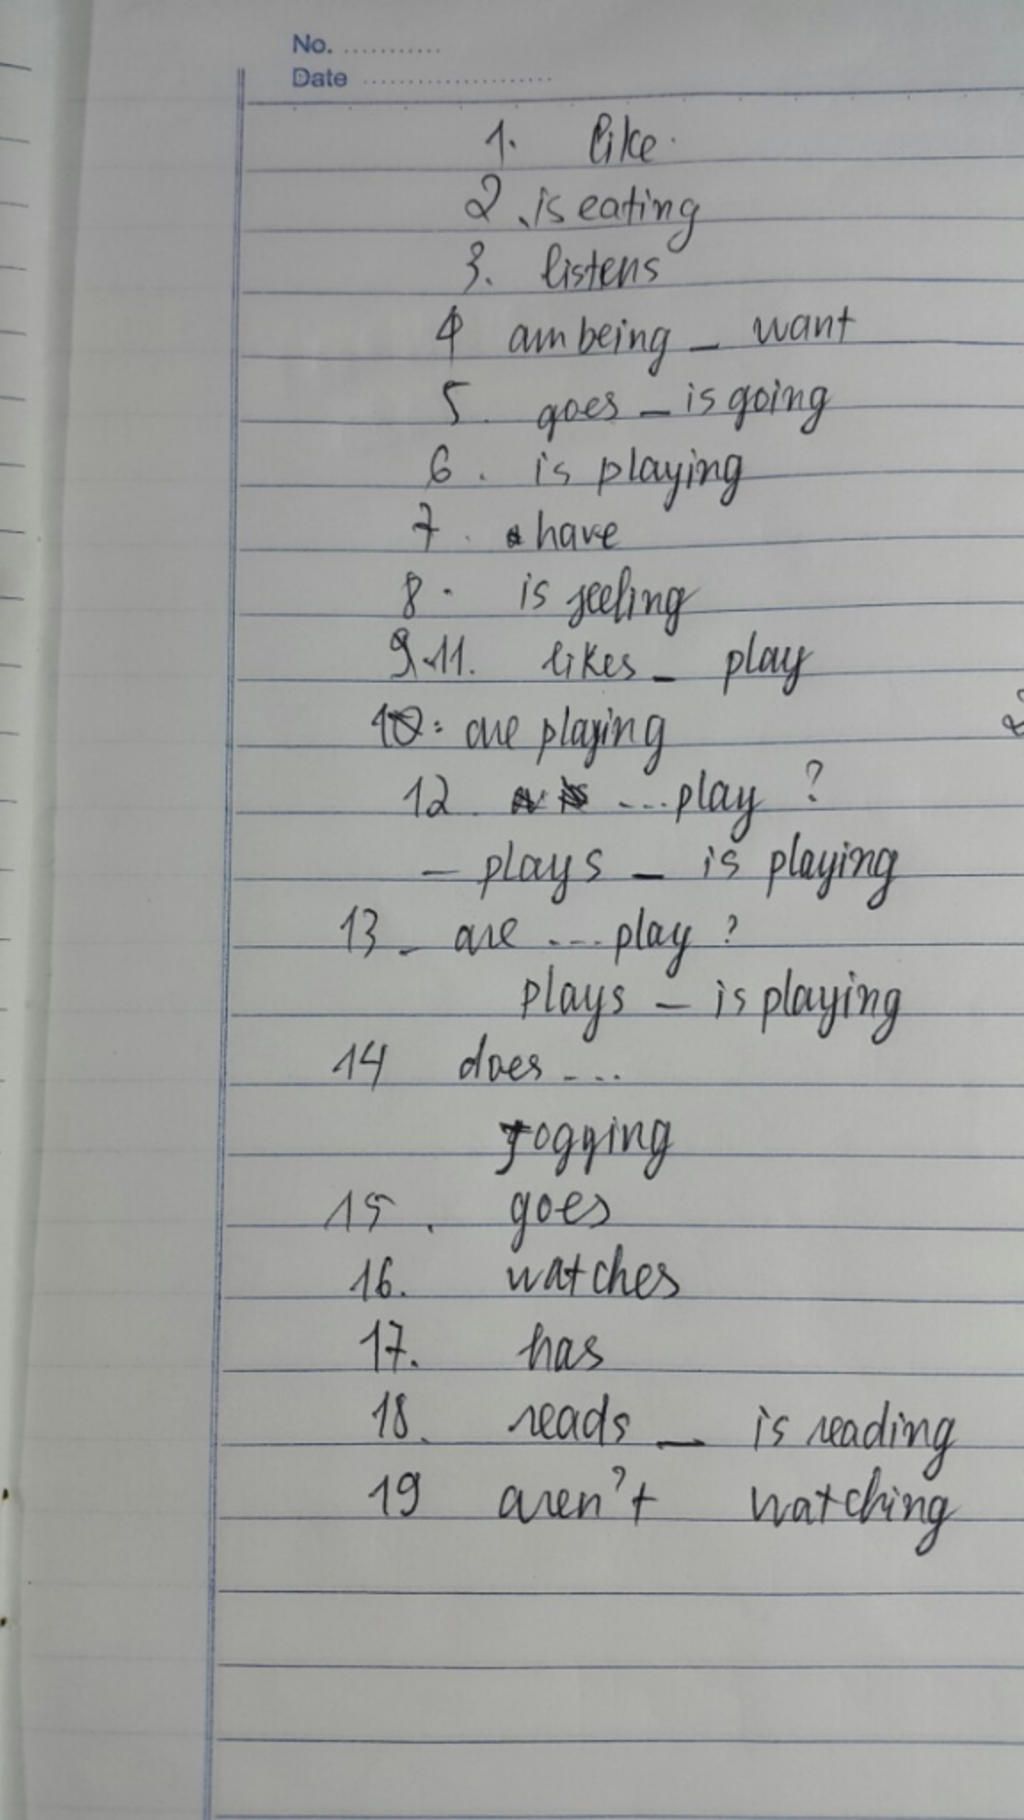 No. ...........
Date ......................
1. like.
2. is eating
3. listens
4 am being _ want
5. goes _ is going
6. is playing
7. have
8. is feeling
9.11. likes _ play
10: are playing
12. ... play ?
_ plays _ is playing
13 _ are ... play ?
plays _ is playing
14 does ...
Jogging
15. goes
16. watches
17. has
18. reads _ is reading
19 aren't watching